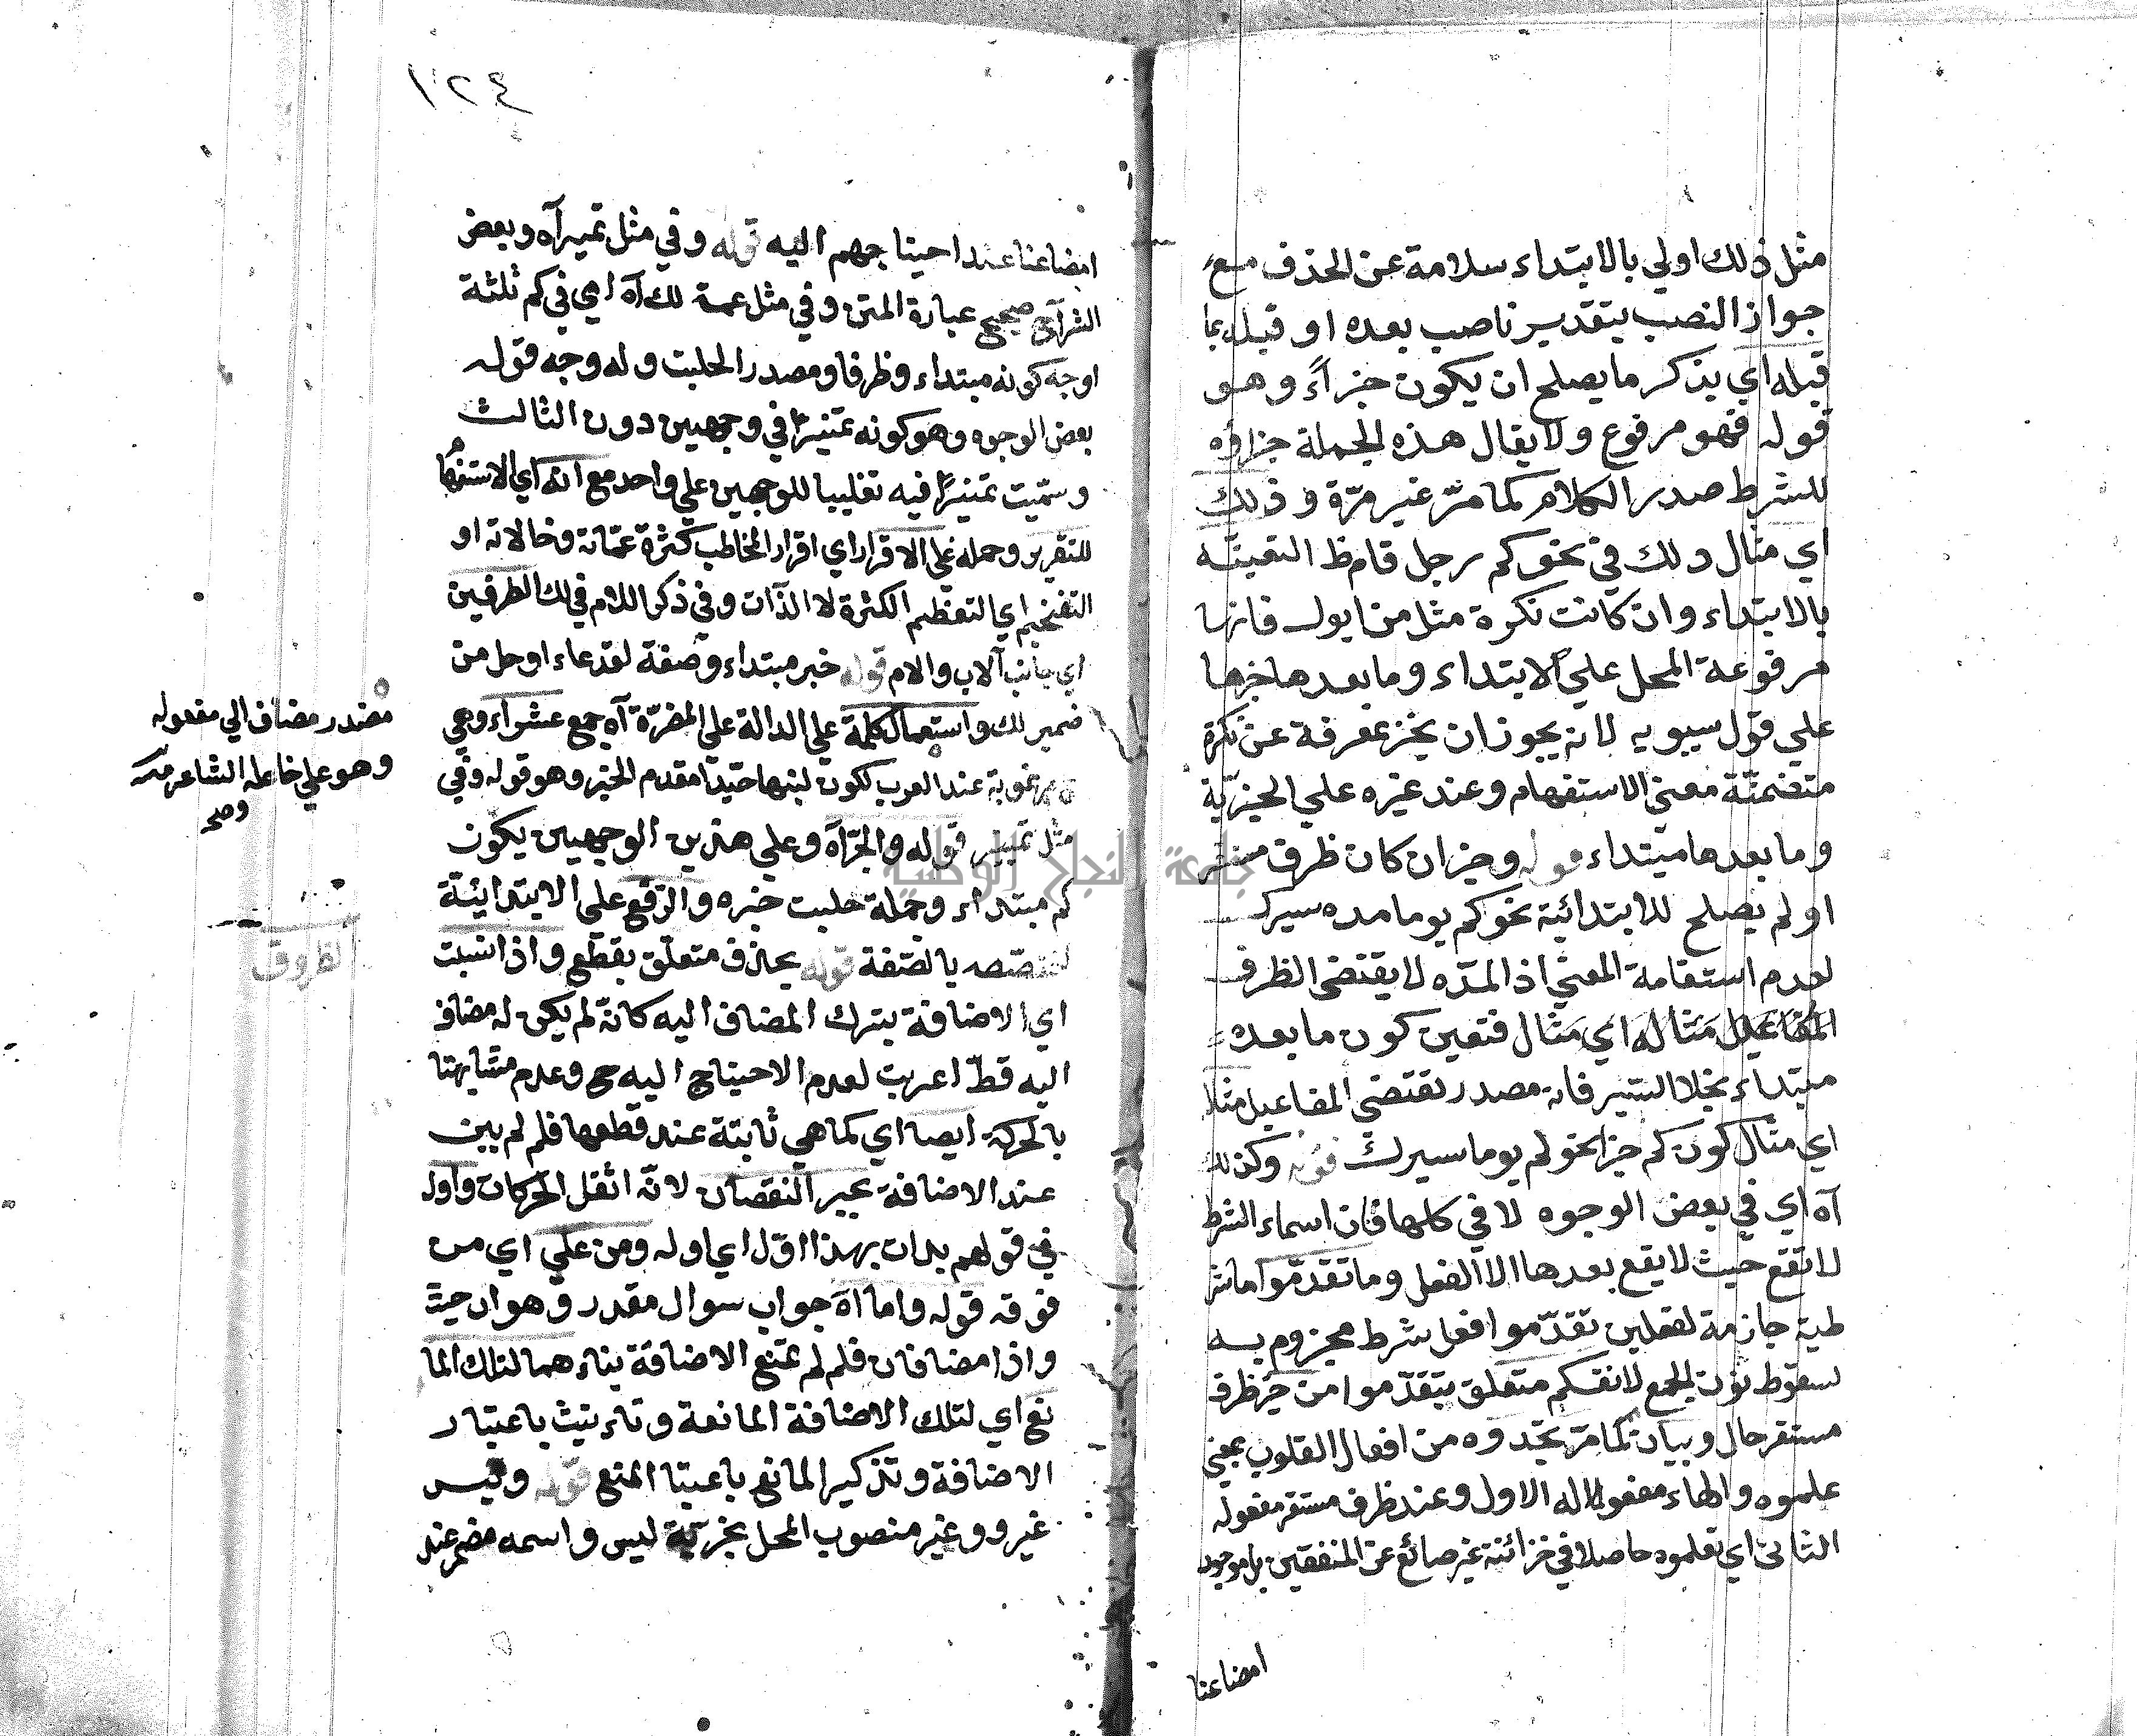 مثل ذلك اولي بالابتداء سلامة عن الحذف مع
جواز النصب بتقدير ناصب بعده او قبله بما
قبله اي يذكر ما يصلح ان يكون جزاءً وهو
قوله فهو مرفوع ولا يقال هذه الجملة جزاؤه
للشرط صدر الكلام كما مرّ غير مرّة وذلك
اي مثال ذلك في نحو كم رجل قام
بالابتداء وان كانت نكرة مثل من ابوك فانها
مرفوعة المحل علي الابتداء وما بعدها خبرها
علي قول سيبويه لانه يجوز ان يخبر بمعرفة عن نكرة
متضمنّة معني الاستفهام وعند غيره علي الخبريّة
وما بعدها مبتداء قوله وخبر ان كان ظرف مستقر
او لم يصلح للابتدائية نحو كم يوما مده سيرك
لعدم استقامة المعني اذ المدّه لا يقتضي الظرف
المفاعيل مثاله اي مثال فتعين كون ما بعده
مبتداء بخلا السير فانه مصدر يقتضي المفاعيل مثلا
اي مثال كون كم خبرا نحو كم يوما سيرك قوله وكذلك
آه اي في بعض الوجوه لا في كلها فان اسماء الشرط
لا تقع حيث لا يقع بعدها الا الفعل وما تقدّموا ما شر
طية جازمة لفعلين تقدّموا فعل شرط مجزوم به
لسقوط نون الجمع لانفسكم متعلق بتقدّموا من خير ظرف
مستقر حال وبيان لما مرّ تجدوه من افعال القلوب بمعني
علموه والهاء مفعولا له الاول وعند ظرف مستقر مفعوله
الثاني اي تعلموه حاصلا في خزائنه غير ضائع عن المنفقين بل موجود
امضاعنا
١٢٤
امضاعنا عند احتياجهم اليه قوله وفي مثل تمييز آه وبعض
الشرآح صحيح عبارة المتن وفي مثل عمة لك آه اي في كم ثلثة
اوجه كونه مبتداء وظرفا ومصدر الحلبت وله وجه قوله
بعض الوجوه وهو كونه تمييزًا في وجهين دون الثالث
وسمّيت تمييزًا فيه تغليبا للوجهين علي واحد مع انه اي الاستفها
للتقرير وحمله علي الاقرار اي اقرار المخاطب كثرة عمّاته وخالاته او
التفخيم اي التعظيم الكثرة لا الذآت وفي ذكر اللام في لك الطرفين
اي جانب آلاب والام قوله خبر مبتداء وصفة لفدعاء او حل من
ضمير لك واستعمال كلمة علي الدالة علي المضرّة آه جمع عشراء وهي
مرغوبة عند العرب لكون لبنها جيّدا مقدم الخبر وهو قوله وفي
مثل تمييز قوله والجرّ آه وعلي هذين الوجهين يكون
كم مبتداء وجملة حلبت خبره والرّفع علي الابتدائيّة
بالصّفة قوله بحذف متعلق بقطع واذا نسيت
اي الاضافة بترك المضاف اليه كانّه لم يكن له مضاف
اليه قطّ اعربت لعدم الاحتياج اليه ح وعدم مشابهتا
بالحركة ايضا اي كما هي ثابتة عند قطعها فلم لم يبن
عند الاضافة بجبر النقصان لانّه اثقل الحركات واول
في قولهم بدات بهذا اوّل اي اوله ومن علي اي من
فوقه قوله واما آه جواب سوال مقدر وهو ان حيث
واذا مضافان فلم لم تمنع الاضافة بناءهما لتلك الما
نع اي لتلك الاضافة المانعة وتاءنيث باعتبار
الاضافة وتذكير المانع باعتبا المنع قوله وليس
غير و وغير منصوب المحل بخبريّة ليس واسمه مضمر عند
مصدر مضاف الي مفعوله
وهو علي خاطه الشاعر منه
وصح
لظروف
جامعة النجاح الوطنية